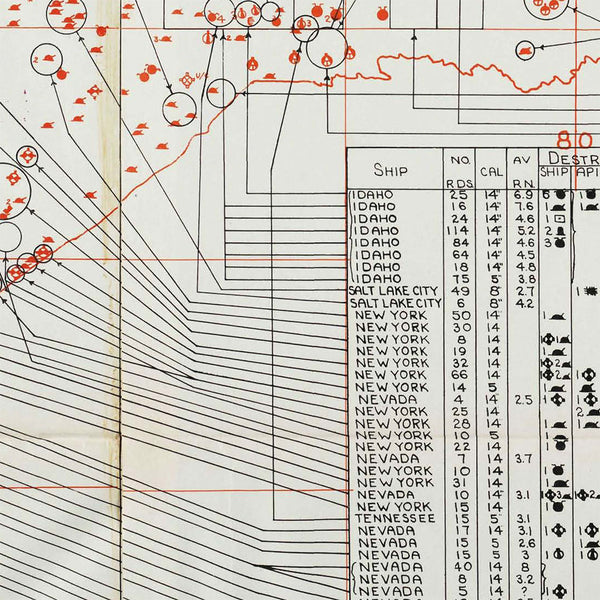 80
SHIP NO. RDS. CAL AV RN. DESTR SHIP API
IDAHO 25 14" 6.9 6 1
IDAHO 16 14" 7.6 1 1
IDAHO 24 14" 4.6 1
IDAHO 114 14" 5.2 2
IDAHO 84 14" 4.6 3
IDAHO 64 14" 4.5
IDAHO 18 14" 4.8
IDAHO 75 5" 3.8
SALT LAKE CITY 49 8" 2.7 1
SALT LAKE CITY 6 8" 4.2
NEW YORK 50 14" 1
NEW YORK 30 14"
NEW YORK 8 14" 1 1
NEW YORK 19 14" 1
NEW YORK 32 14" 1 2
NEW YORK 66 14" 1 2 1
NEW YORK 14 5 1
NEVADA 4 14" 2.5 1 1
NEW YORK 25 14" 2
NEW YORK 28 14" 1 1
NEW YORK 10 5 1
NEW YORK 22 14" 1
NEVADA 7 14" 3.7
NEW YORK 10 14" 1
NEW YORK 31 14" 1
NEVADA 10 14" 3.1 1 3 1 2
NEW YORK 15 14" 1
TENNESSEE 15 5" 3.1
NEVADA 17 14" 3.1 1 1
NEVADA 15 5 2.6 1
NEVADA 15 5 3 1 1
NEVADA 40 14" 8
NEVADA 8 14" 3.2
NEVADA 5 14" ? 1